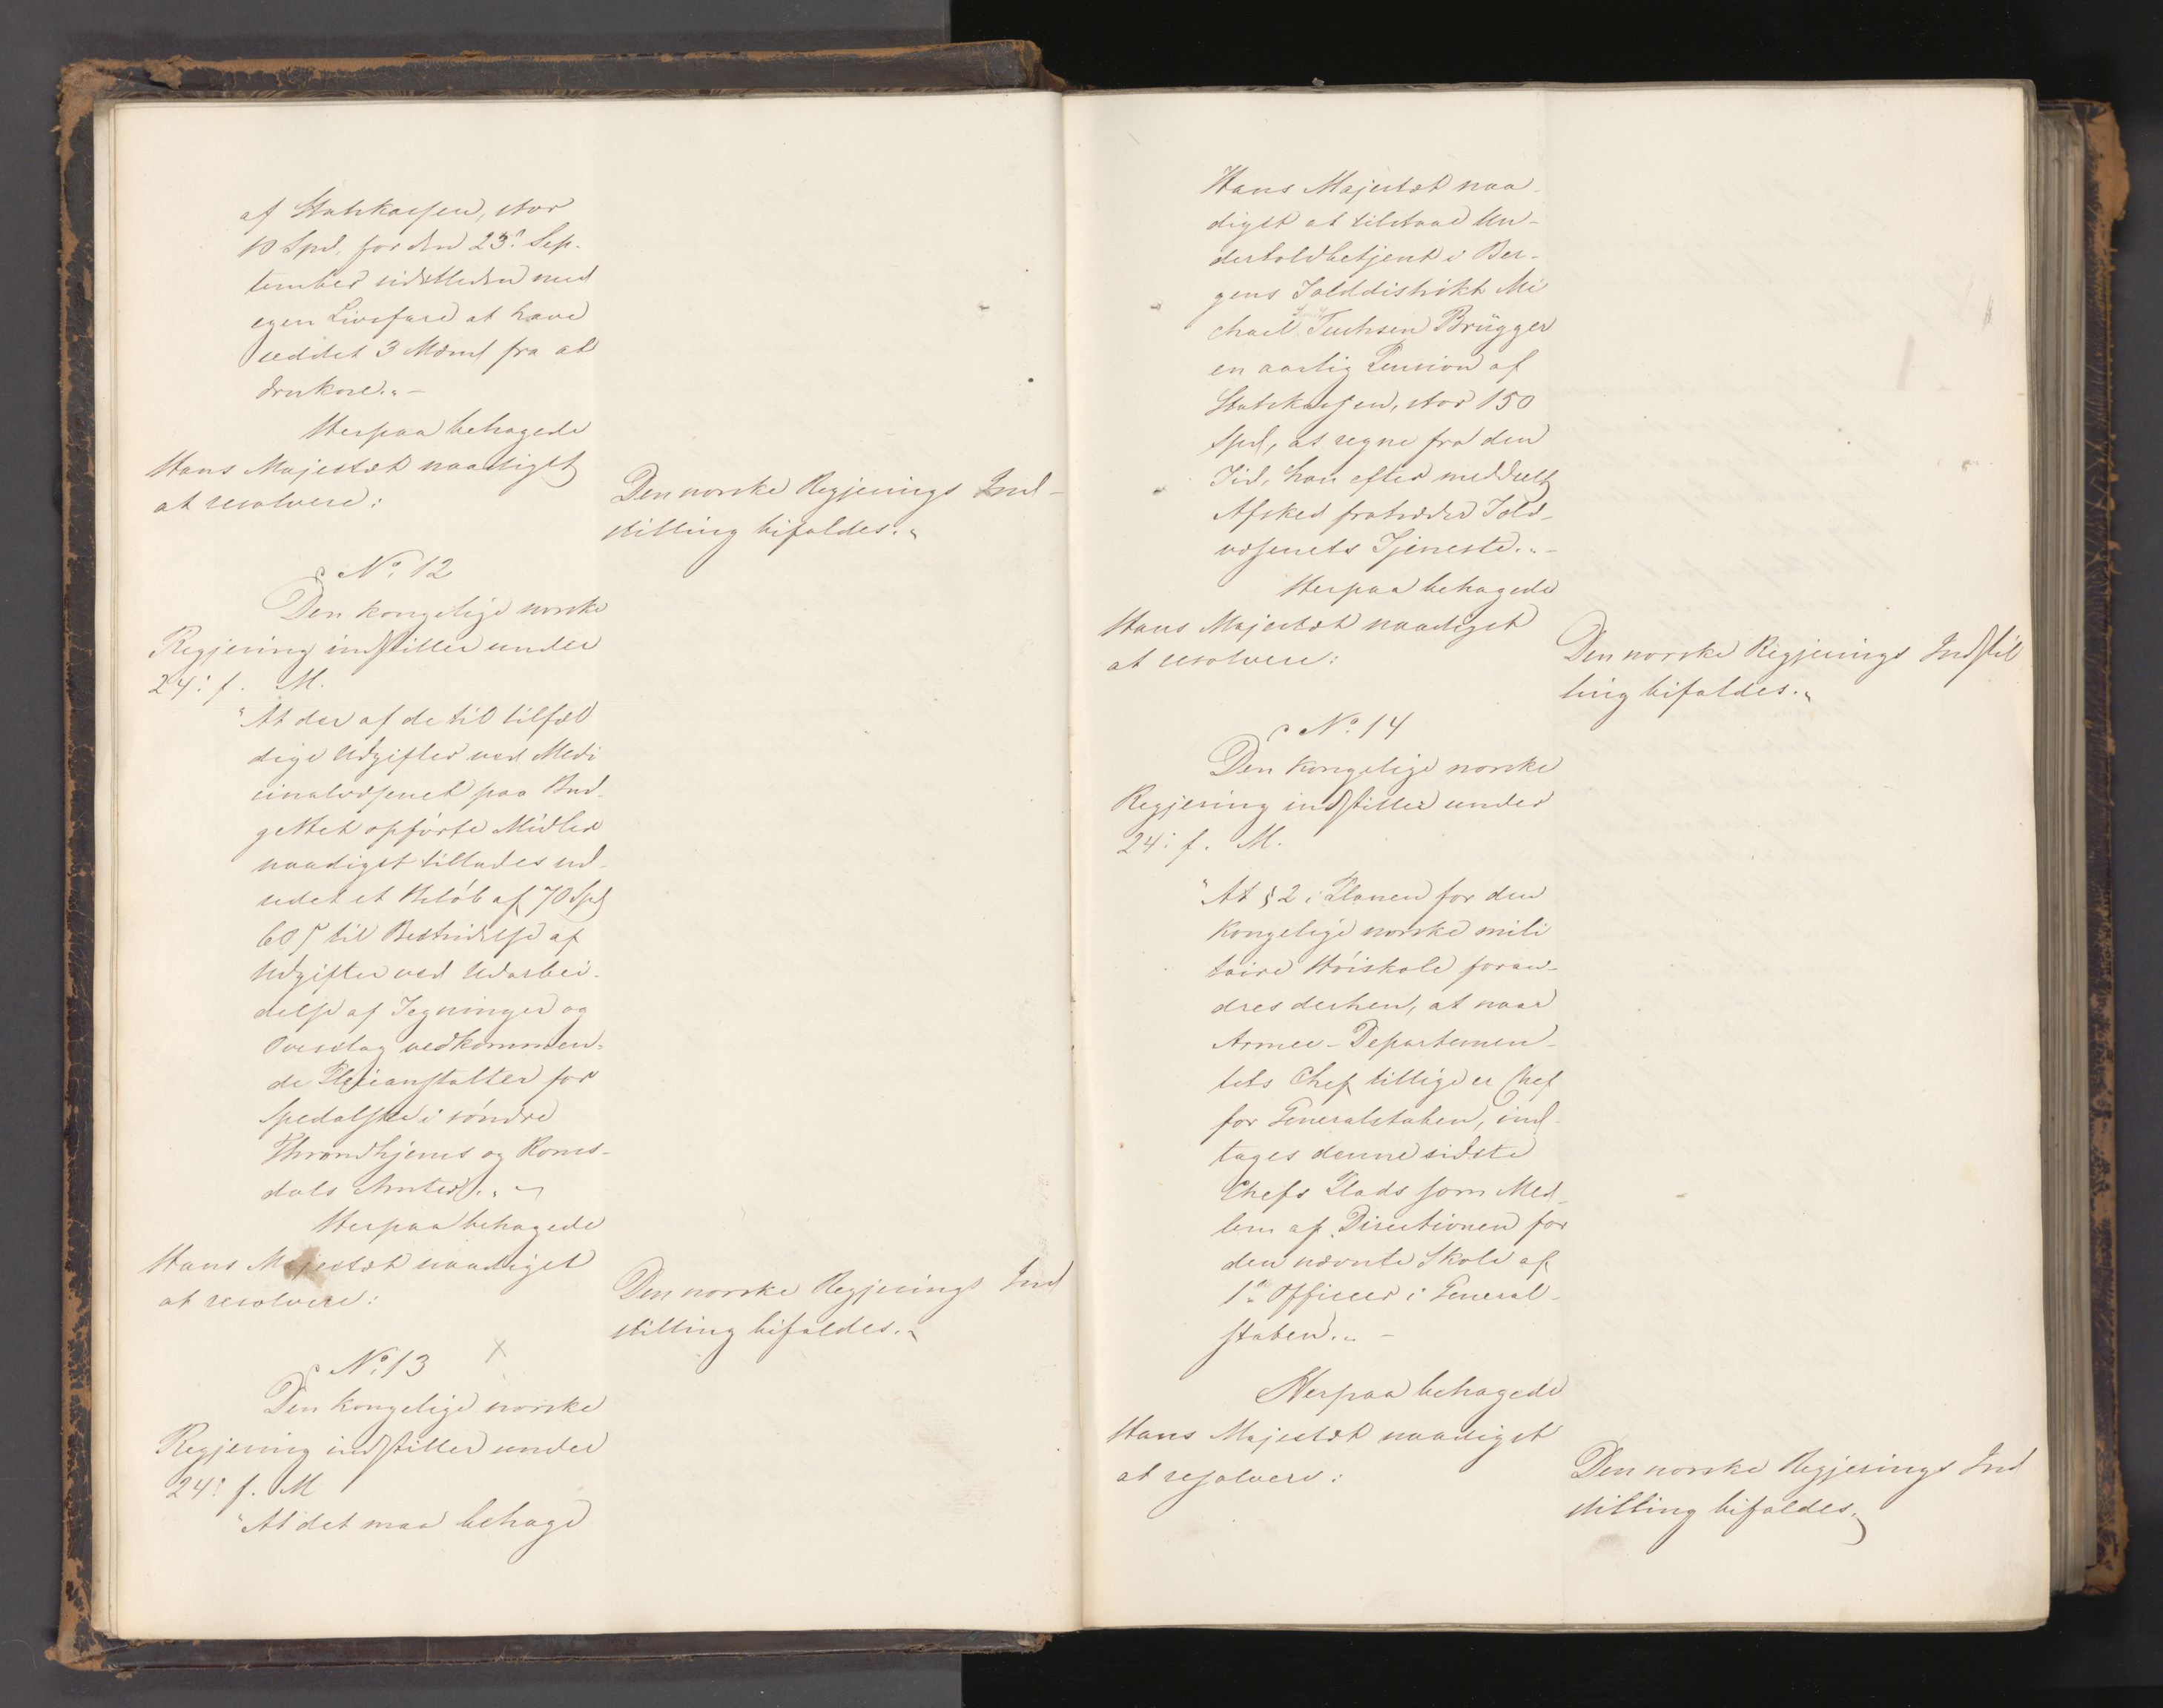 af Statskassen, stor
10 Spd. for den 23. Sep-
tember sidstleden med
egen Livsfare at have
reddet 3 Mænd fra at
drukne." -
Herpaa behagede
Hans Majestæt naadigst
at resolvere:
Den norske Regjerings Ind-
stilling bifaldes."
No. 12
Den kongelige norske
Regjering indstiller under
24: f. M.
"At der af de til tilfæl
dige Udgifter ved Medi
cinalvæsenet paa Bud-
gettet opførte Midler
naadigst tillades ud-
redet et Beløb af 70 Spd
60 s til Bestridelse af
Udgifter ved Udarbei-
delse af Tegninger og
Overslag vedkommen-
de Pleieanstalter for
Spedalske i søndre
Throndhjems og Roms-
dals Amter." -
Herpaa behagede
Hans Majestæt naadigst
at resolvere:
Den norske Regjerings Ind
stilling bifaldes."
No. 13
Den kongelige norske
Regjering indstiller under
24: f. M
"At det maa behage
Hans Majestæt naa-
digst at tilstaae Un-
dertoldbetjent i Ber-
gens Tolddistrikt Mi
chael Tuchsen Brügger
en aarlig Pension af
Statskassen, stor 150
Spd, at regne fra den
Tid, han efter meddeelt
Afsked fratræder Told-
væsenets Tjeneste." -
Herpaa behagede
Hans Majestæt naadigst
at resolvere:
Den norske Regjerings Indstil
ling bifaldes."
No. 14
Den kongelige norske
Regjering indstiller under
24: f. M.
"At § 2 i Planen for den
kongelige norske mili
taire Høiskole foran-
dres derhen, at naar
Armee-Departemen-
tets Chef tillige er Chef
for Generalstaben, ind-
tages denne sidste
Chefs Plads som Med-
lem af Directionen for
den nævnte Skole af
1ste Officer i General-
staben." -
Herpaa behagede
Hans Majestæt naadigst
at resolvere:
Den norske Regjerings Ind
stilling bifaldes."